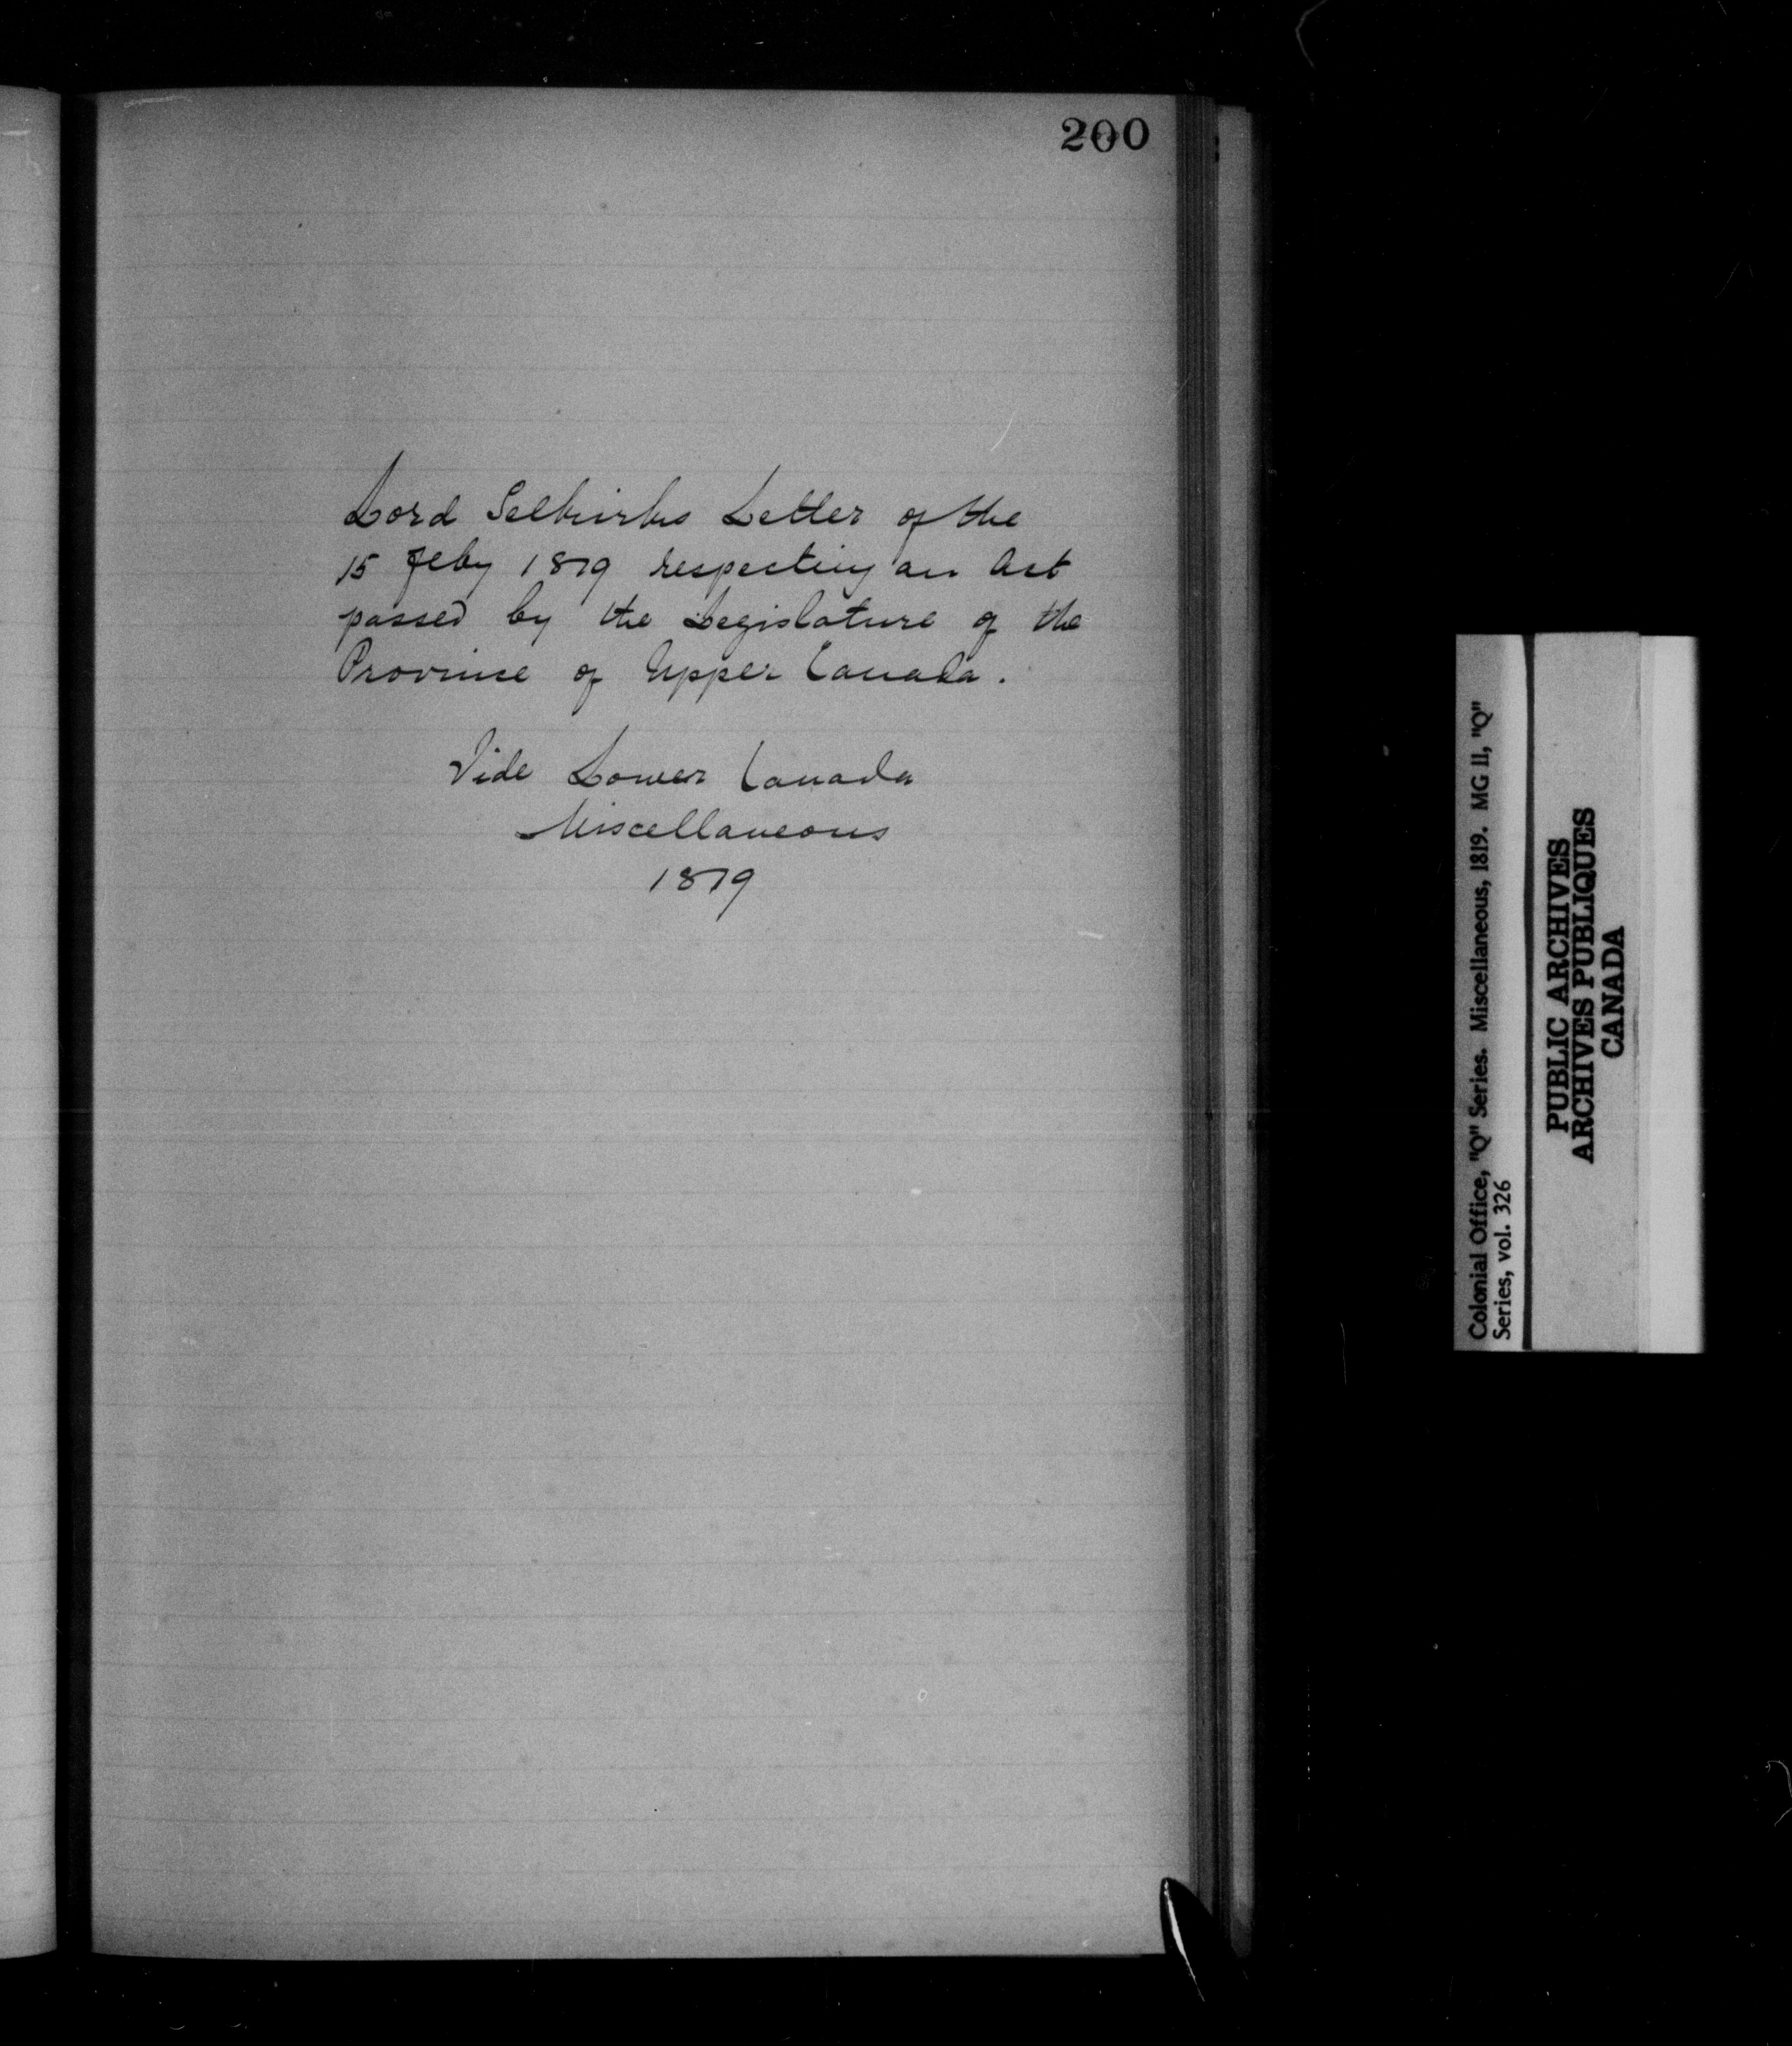 200
Lord Selkirks Letter of the
15 Feby 1819 respecting an Act
passed by the Legislature of the
Province of Upper Canada.
Vide Lower Canada
Miscellaneous
1819
Colonial Office, "Q" Series. Miscellaneous, 1819. MG 11, "Q"
Series, vol. 326
PUBLIC ARCHIVES
ARCHIVES PUBLIQUES
CANADA